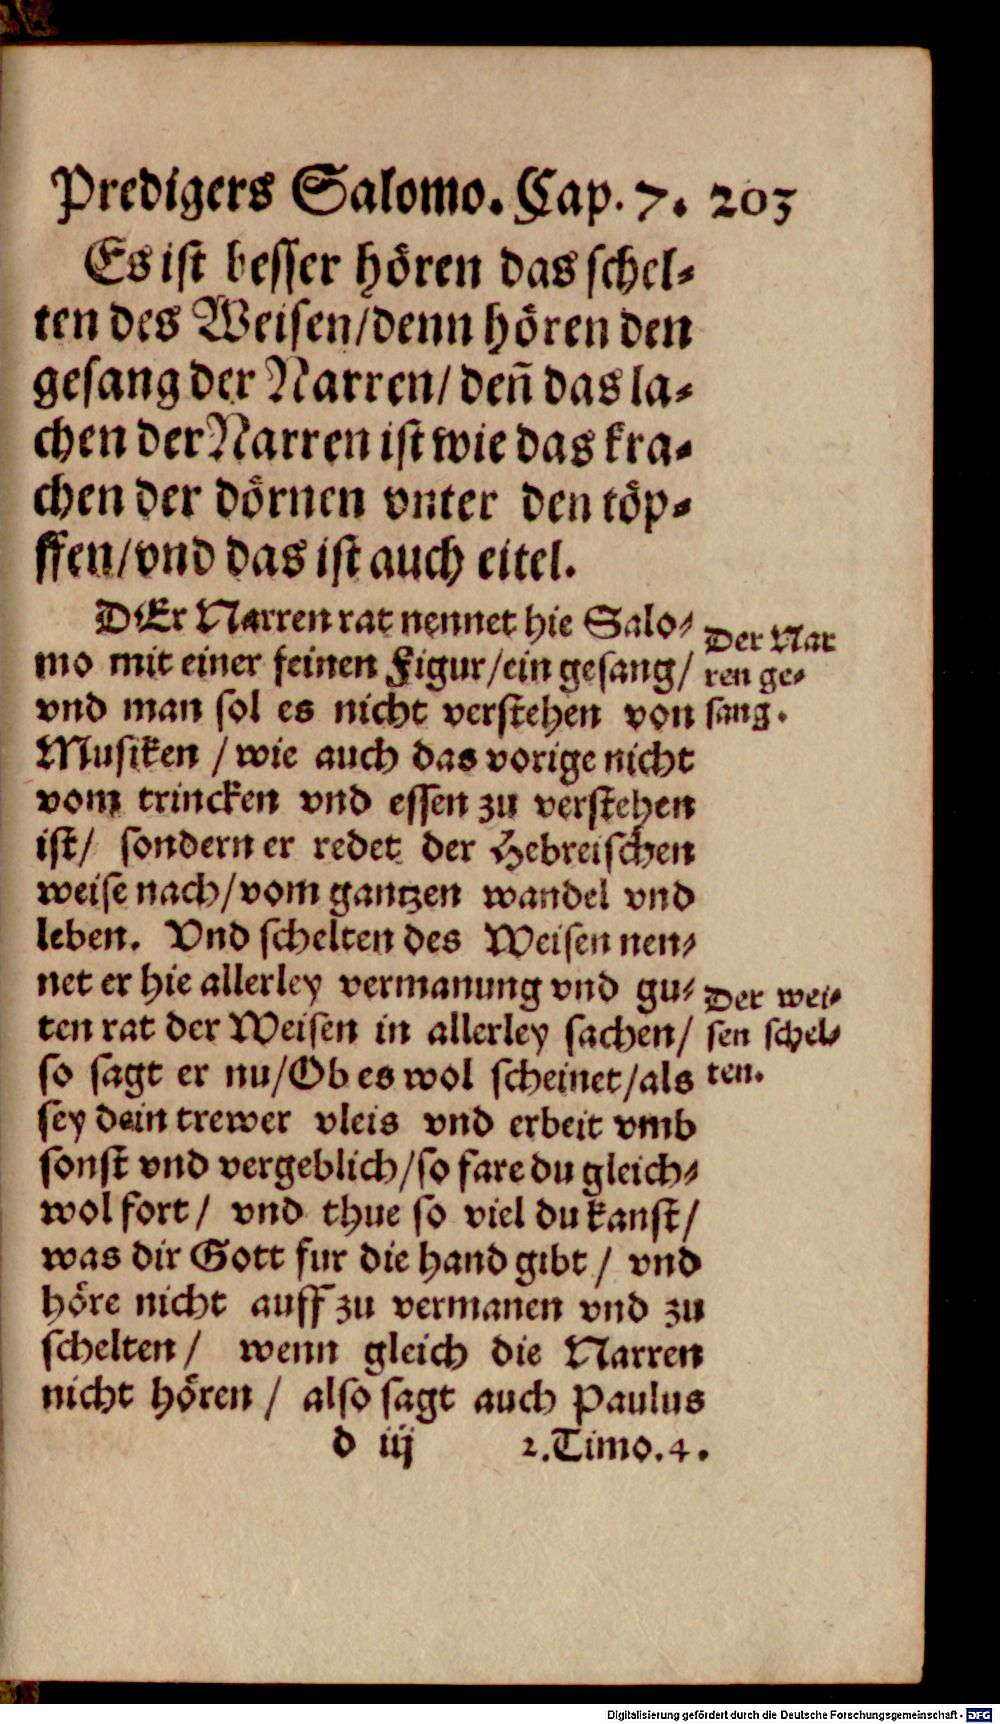 Predigers Salomo. Cap. 7. 203
Es ist besser hören das schel-
ten des Weisen/denn hören den
gesang der Narren/ deñ das la-
chen der Narren ist wie das kra-
chen der dörnen vnter den töp-
ffen/vnd das ist auch eitel.
DEr Narren rat nennet hie Salo-
mo mit einer feinen Figur/ein gesang/
vnd man sol es nicht verstehen von
Musiken /wie auch das vorige nicht
vom trincken vnd essen zu verstehen
ist/ sondern er redet der Hebreischen
weise nach/vom gantzen wandel vnd
leben. Vnd schelten des Weisen nen-
net er hie allerley vermanung vnd gu-
ten rat der Weisen in allerley sachen/
so sagt er nu/Ob es wol scheinet/als
sey dein trewer vleis vnd erbeit vmb
sonst vnd vergeblich/so fare du gleich-
wol fort/ vnd thue so viel du kanst/
was dir Gott fur die hand gibt/ vnd
höre nicht auff zu vermanen vnd zu
schelten/ wenn gleich die Narren
nicht hören/ also sagt auch Paulus
d iij 2.Timo.4.
Der Nar
ren ge-
sang.
Der wei-
sen schel-
ten.
Digitalisierung gefördert durch die Deutsche Forschungsgemeinschaft - DFG